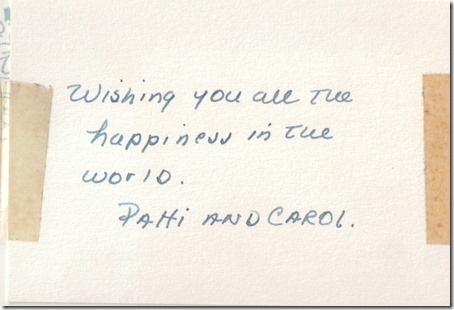 Wishing you all the
happiness in the
world.
Patti and Carol.